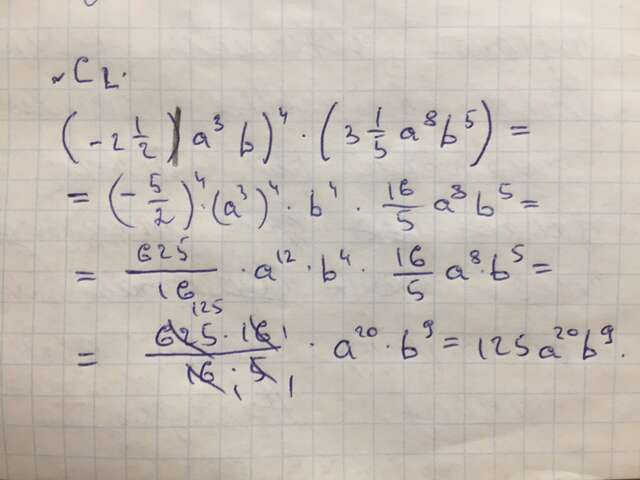 C2.
(-2 1/2 a³ b)⁴ · (3 1/5 a⁸ b⁵) =
= (-5/2)⁴ · (a³)⁴ · b⁴ · 16/5 a⁸ b⁵ =
= 625/16 · a¹² · b⁴ · 16/5 a⁸ · b⁵ =
= 625 · 16 / 16 · 5 · a²⁰ · b⁹ = 125 a²⁰ b⁹.